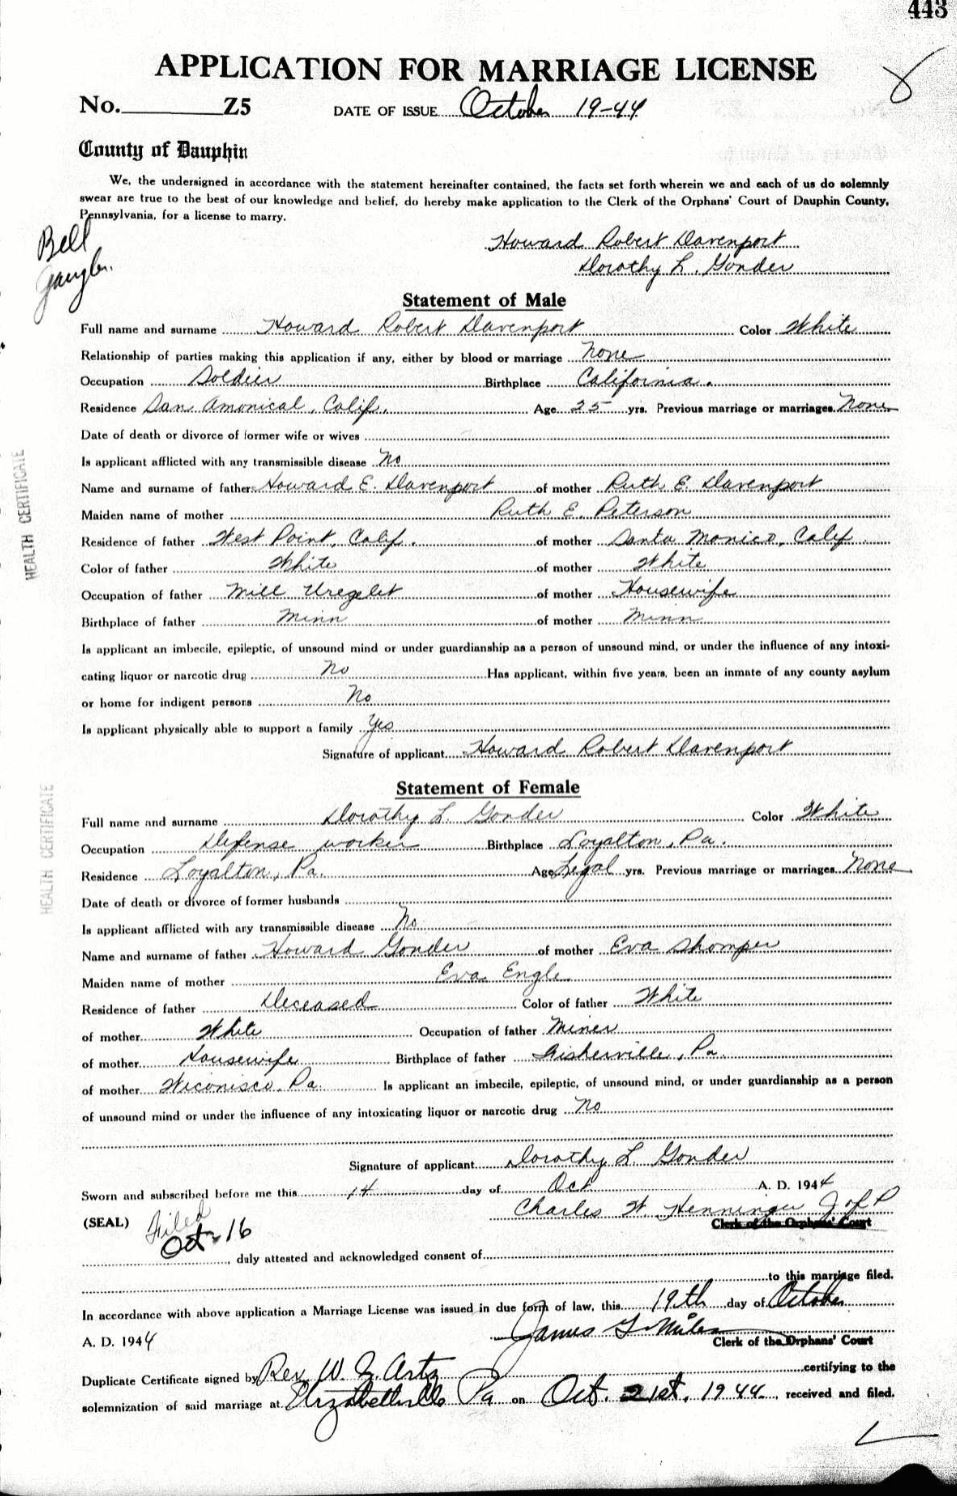 443
APPLICATION FOR MARRIAGE LICENSE
No. Z5 DATE OF ISSUE October 19-44
County of Dauphin
We, the undersigned in accordance with the statement hereinafter contained, the facts set forth wherein we and each of us do solemnly
swear are true to the best of our knowledge and belief, do hereby make application to the Clerk of the Orphans' Court of Dauphin County,
Pennsylvania, for a license to marry.
Bell
Howard Robert Davenport
Dorothy L. Gonder
Statement of Male
Full name and surname Howard Robert Davenport Color White
Relationship of parties making this application if any, either by blood or marriage None
Occupation Soldier Birthplace California.
Residence San Amonical, Calif. Age 25 yrs. Previous marriage or marriages None
Date of death or divorce of former wife or wives
Is applicant afflicted with any transmissible disease No
HEALTH CERTIFICATE
Name and surname of father Howard E. Davenport of mother Ruth E. Davenport
Maiden name of mother Ruth E. Peterson
Residence of father West Point, Calif. of mother Santa Monica, Calif
Color of father White of mother White
Occupation of father Mill of mother Housewife
Birthplace of father Minn of mother Minn
Is applicant an imbecile, epileptic, of unsound mind or under guardianship as a person of unsound mind, or under the influence of any intoxi-
cating liquor or narcotic drug No Has applicant, within five years, been an inmate of any county asylum
or home for indigent persons No
Is applicant physically able to support a family Yes
Signature of applicant Howard Robert Davenport
Statement of Female
HEALTH CERTIFICATE
Full name and surname Dorothy L. Gonder Color White
Occupation Defense worker Birthplace Loyalton, Pa.
Residence Loyalton, Pa. Age Legal yrs. Previous marriage or marriages None
Date of death or divorce of former husbands
Is applicant afflicted with any transmissible disease No
Name and surname of father Howard Gonder of mother Eva Shomper
Maiden name of mother Eva Engle
Residence of father Deceased Color of father White
of mother White Occupation of father Miner
of mother Housewife Birthplace of father Fisherville, Pa.
of mother Wiconisco, Pa. Is applicant an imbecile, epileptic, of unsound mind, or under guardianship as a person
of unsound mind or under the influence of any intoxicating liquor or narcotic drug No
Signature of applicant Dorothy L. Gonder
Sworn and subscribed before me this 14 day of Oct A. D. 1944
Charles W. Henninger J of P
(SEAL) Filed Clerk of the Orphans' Court
Oct. 16
, duly attested and acknowledged consent of
to this marriage filed.
In accordance with above application a Marriage License was issued in due form of law, this 19th day of October
A. D. 1944 James G. Miles Clerk of the Orphans' Court
Duplicate Certificate signed by Rev. W. Z. Artz certifying to the
solemnization of said marriage at Elizabethville Pa on Oct. 21st, 1944, received and filed.